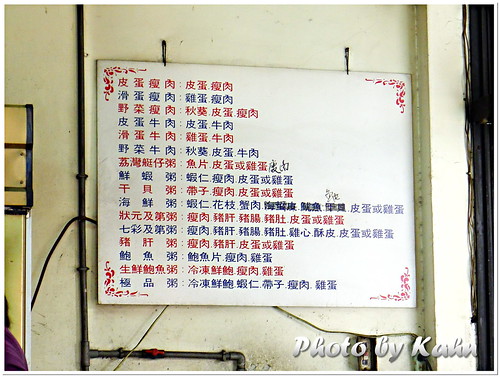 皮蛋瘦肉:皮蛋.瘦肉
滑蛋瘦肉:雞蛋.瘦肉
野菜瘦肉:秋葵.皮蛋.瘦肉
皮蛋牛肉:皮蛋.牛肉
滑蛋牛肉:雞蛋.牛肉
野菜牛肉:秋葵.皮蛋.牛肉
荔灣艇仔粥:魚片.皮蛋或雞蛋 瘦肉
鮮蝦粥:蝦仁.瘦肉.皮蛋或雞蛋
干貝粥:帶子.瘦肉.皮蛋或雞蛋
海鮮粥:蝦仁.花枝.蟹肉.魷魚.皮蛋或雞蛋
狀元及第粥:瘦肉.豬肝.豬腸.豬肚.皮蛋或雞蛋
七彩及第粥:瘦肉.豬肝.豬腸.豬肚.雞心.酥皮.皮蛋或雞蛋
豬肝粥:豬肝.瘦肉.皮蛋或雞蛋
鮑魚粥:鮑魚片.瘦肉.雞蛋
生鮮鮑魚粥:冷凍鮮鮑.瘦肉.雞蛋
極品粥:冷凍鮮鮑.蝦仁.帶子.瘦肉.雞蛋
Photo by Kahn